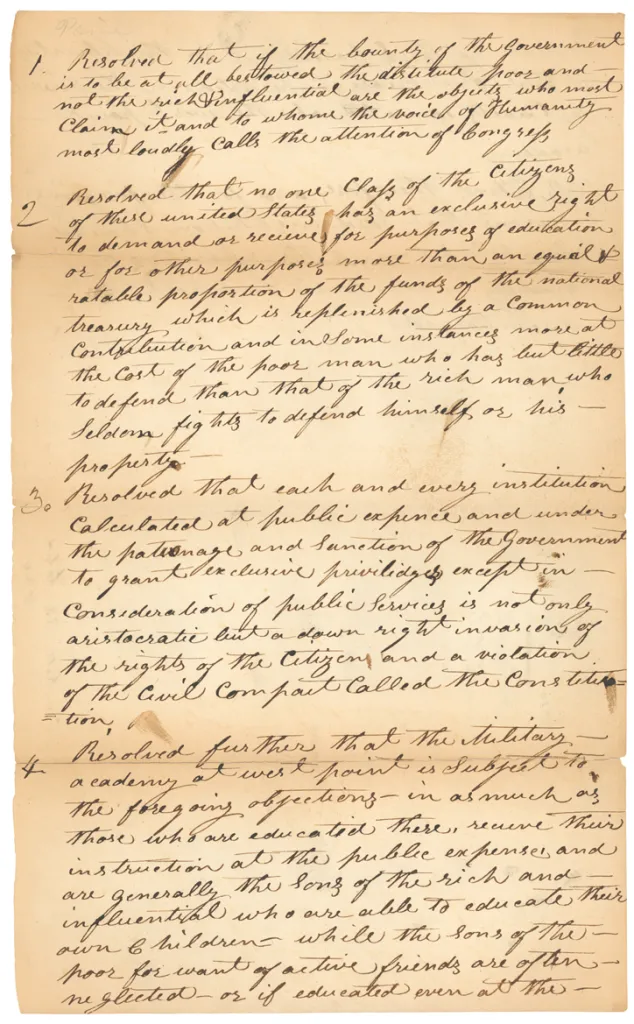 1. Resolved that if the bounty of the Government
is to be at all bestowed the distitute poor and —
not the rich & influential are the objects who most
Claim it and to whome the voice of Humanity
most loudly Calls the attention of Congress
2 Resolved that no one Class of the Citizens
of these united States has an exclusive right
to demand or recieve for purposes of education
or for other purposes more than an equal &
ratable proportion of the funds of the national
treasury which is replenished by a Common
Contribution and in Some instances more at
the Cost of the poor man who has but little
to defend than that of the rich man who
Seldom fights to defend himself or his —
property —
3. Resolved that each and every institution
Calculated at public expence and under
the patronage and Sanction of the Government
to grant exclusive priviledges except in —
Consideration of public Services is not only
aristocratic but a down right invasion of
the rights of the Citizen and a violation
of the Civil Compact Called the Constitu=
=tion
4 Resolved further that the Military —
academy at west point is Subject to
the foregoing objections — in as much as
those who are educated there, receive their
instruction at the public expense and
are generally the Sons of the rich and —
influential who are able to educate their
own Children — while the Sons of the —
poor for want of active friends are often —
neglected — or if educated even at the —